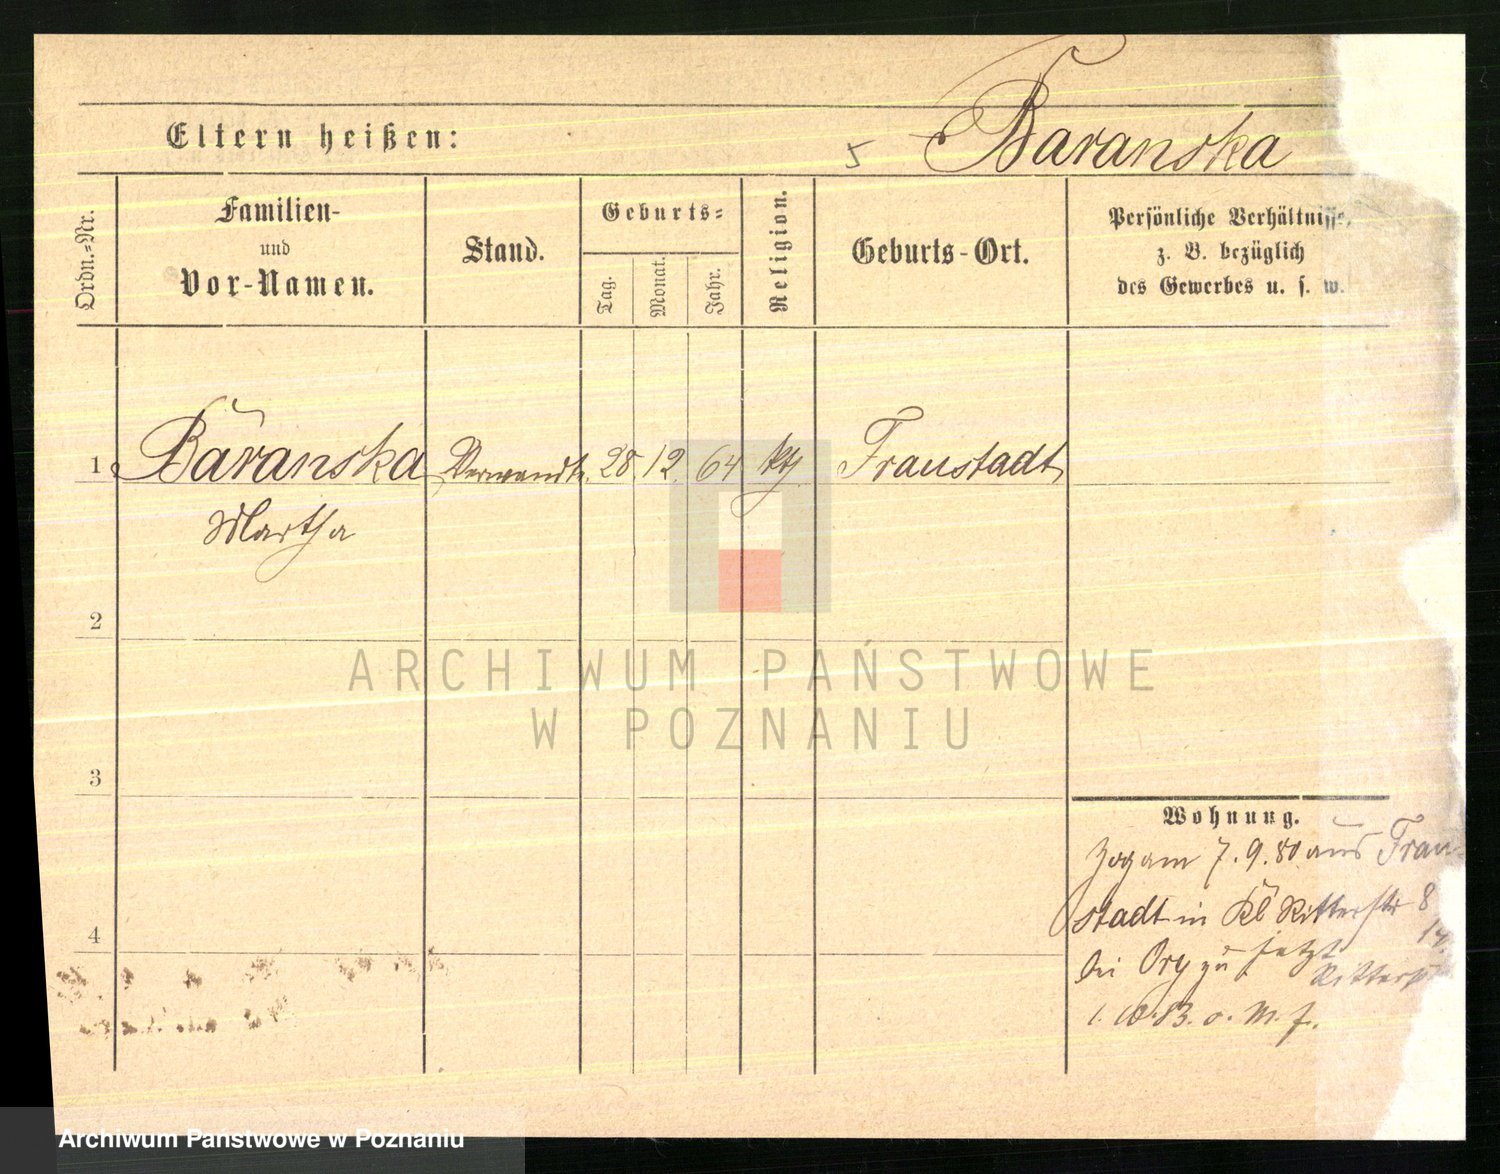 Eltern heißen:
5 Baranska
Ordn.=Nr.
Familien-
und
Vor-Namen.
Stand.
Geburts=
Tag.
Monat.
Jahr.
Religion.
Geburts-Ort.
Persönliche Verhältnisse,
z. B. bezüglich
des Gewerbes u. s. w.
1 Baranska Verwandte. 28. 12. 64 kth. Fraustadt
Martha
2
3
4
Wohnung.
Zog am 7. 9. 80 aus Frau-
stadt in Kl Ritterstr 8
bei jetzt 14.
Ritterstr
1. 10. 83. o. M. f.
ARCHIWUM PAŃSTWOWE
W POZNANIU
Archiwum Państwowe w Poznaniu